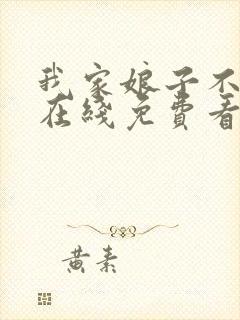 我家娘子不
在綫免費看
黄素